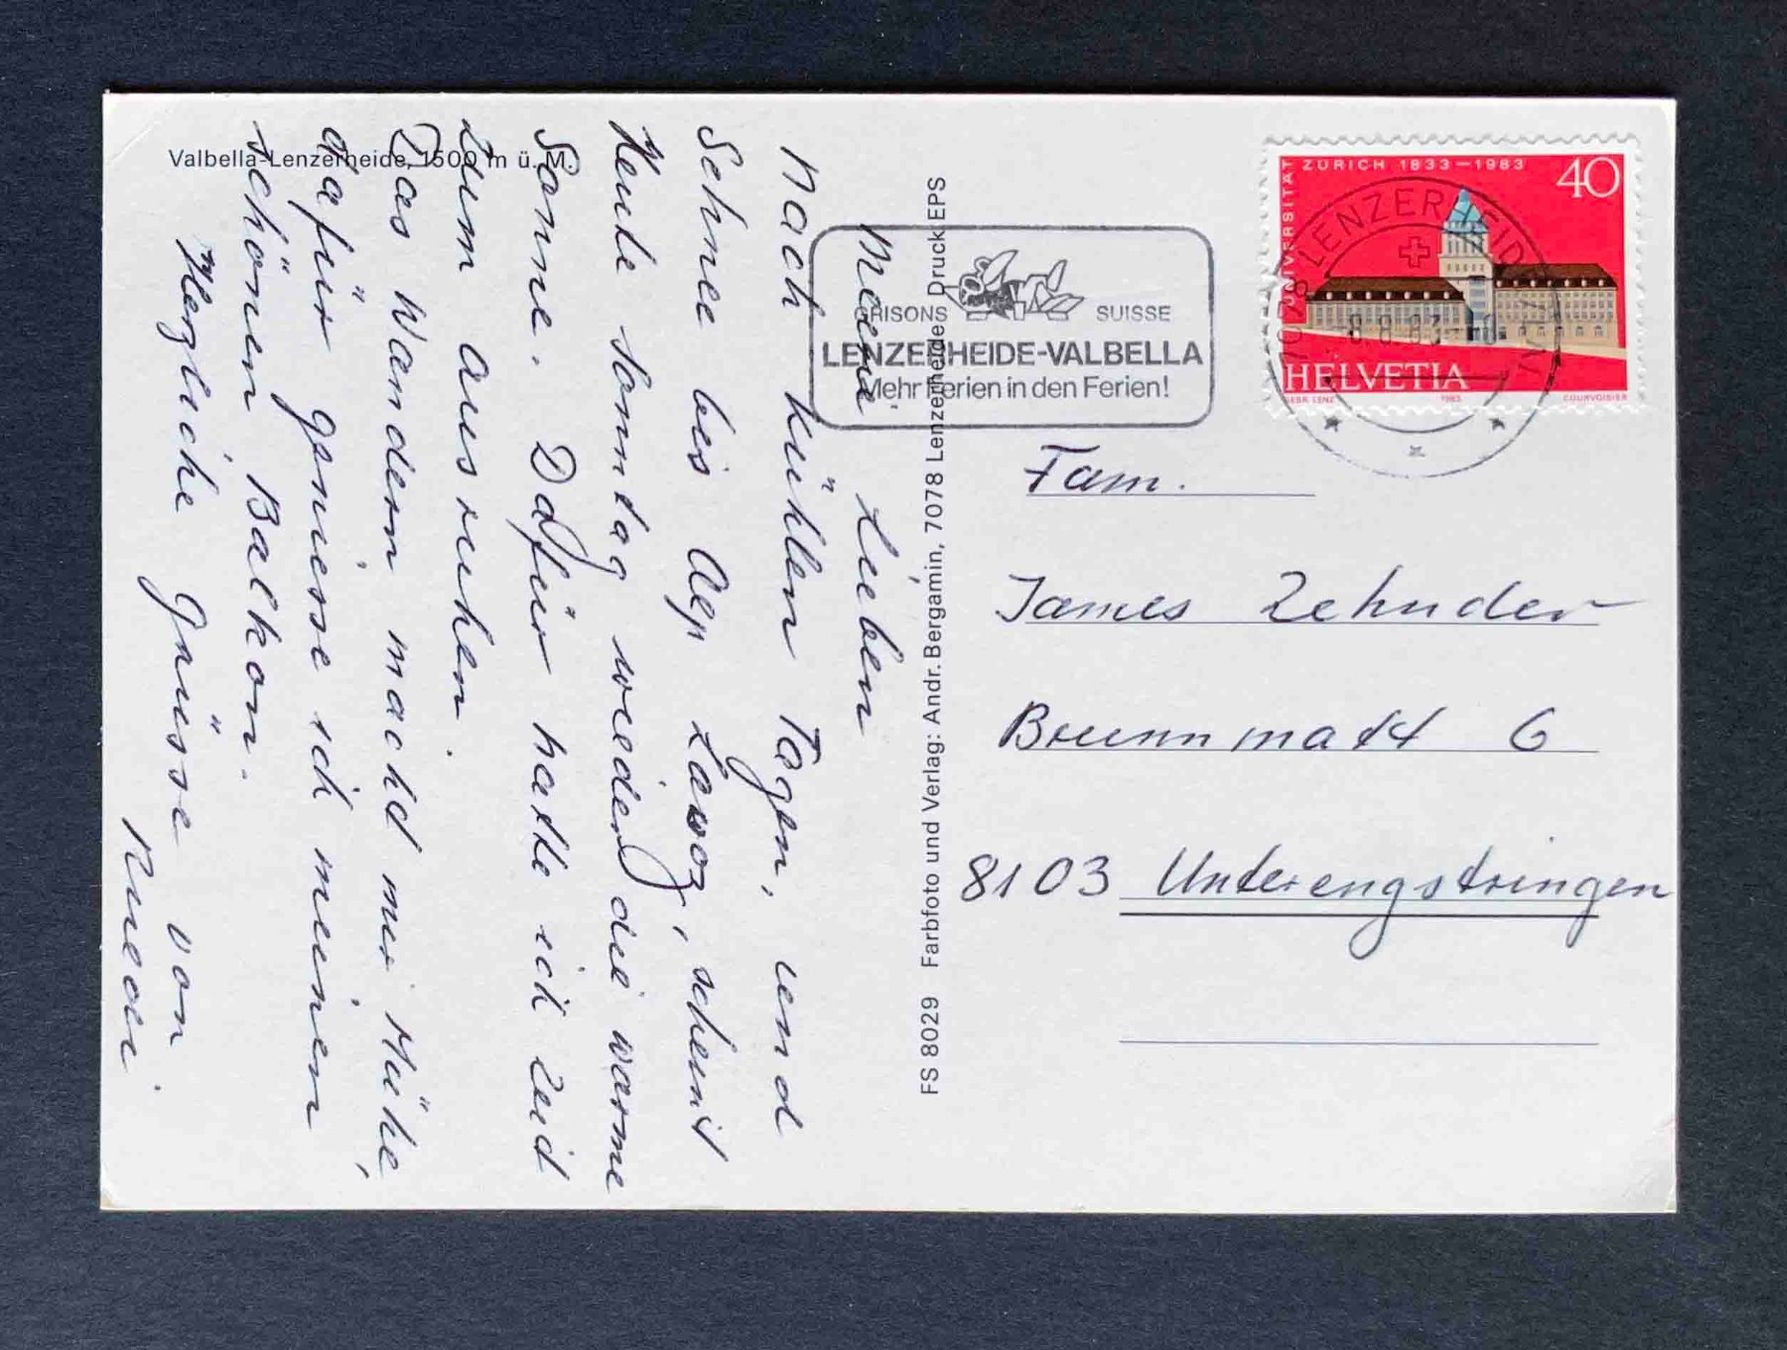 Valbella-Lenzerheide, 1500 m ü. M.
Meine Lieben
Nach kühlen Tagen, und
Schnee bis Alp Lavoz, scheint
Heute Sonntag wieder die warme
Sonne. Dafür hatte ich Zeit
zum ausruhen.
Das Wandern macht mir Mühe,
dafür geniesse ich meinen
schönen Balkon.
Herzliche Grüsse von
Ruedi.
FS 8029 Farbfoto und Verlag: Andr. Bergamin, 7078 Lenzerheide Druck EPS
GRISONS SUISSE
LENZERHEIDE-VALBELLA
Mehr Ferien in den Ferien!
UNIVERSITÄT ZÜRICH 1833–1983
40
HELVETIA
GEBR. LENZ 1983 COURVOISIER
7078 LENZERHEIDE
8.8.83
Fam.
James Zehnder
Brunnmatt 6
8103 Unterengstringen